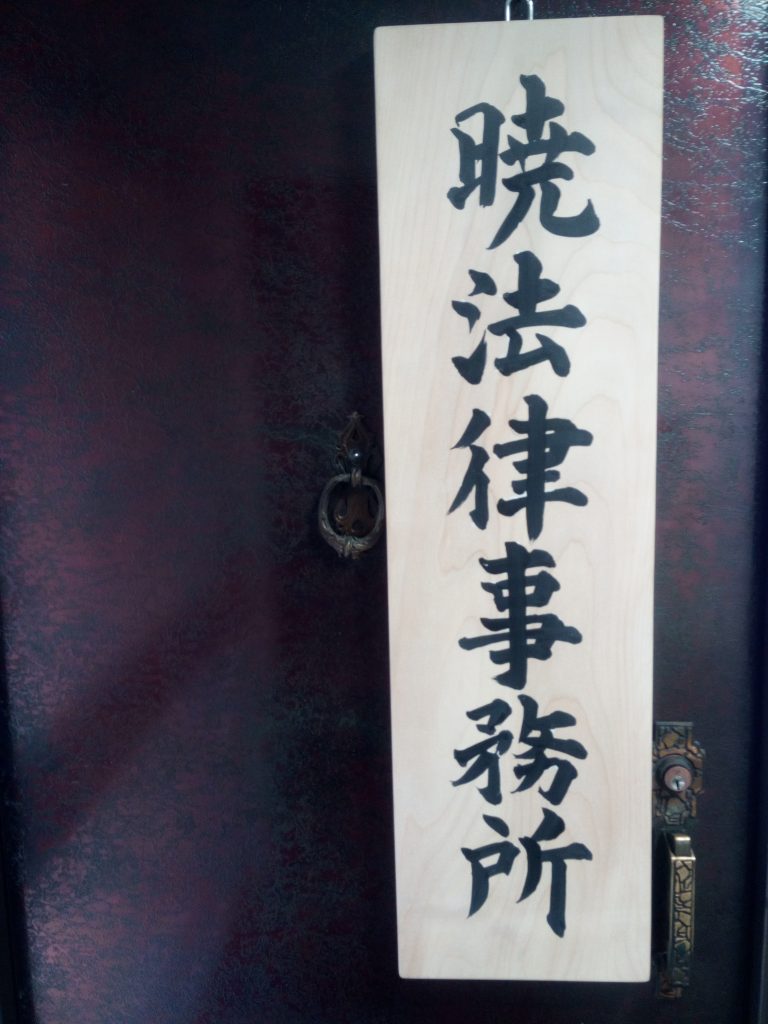 暁法律事務所